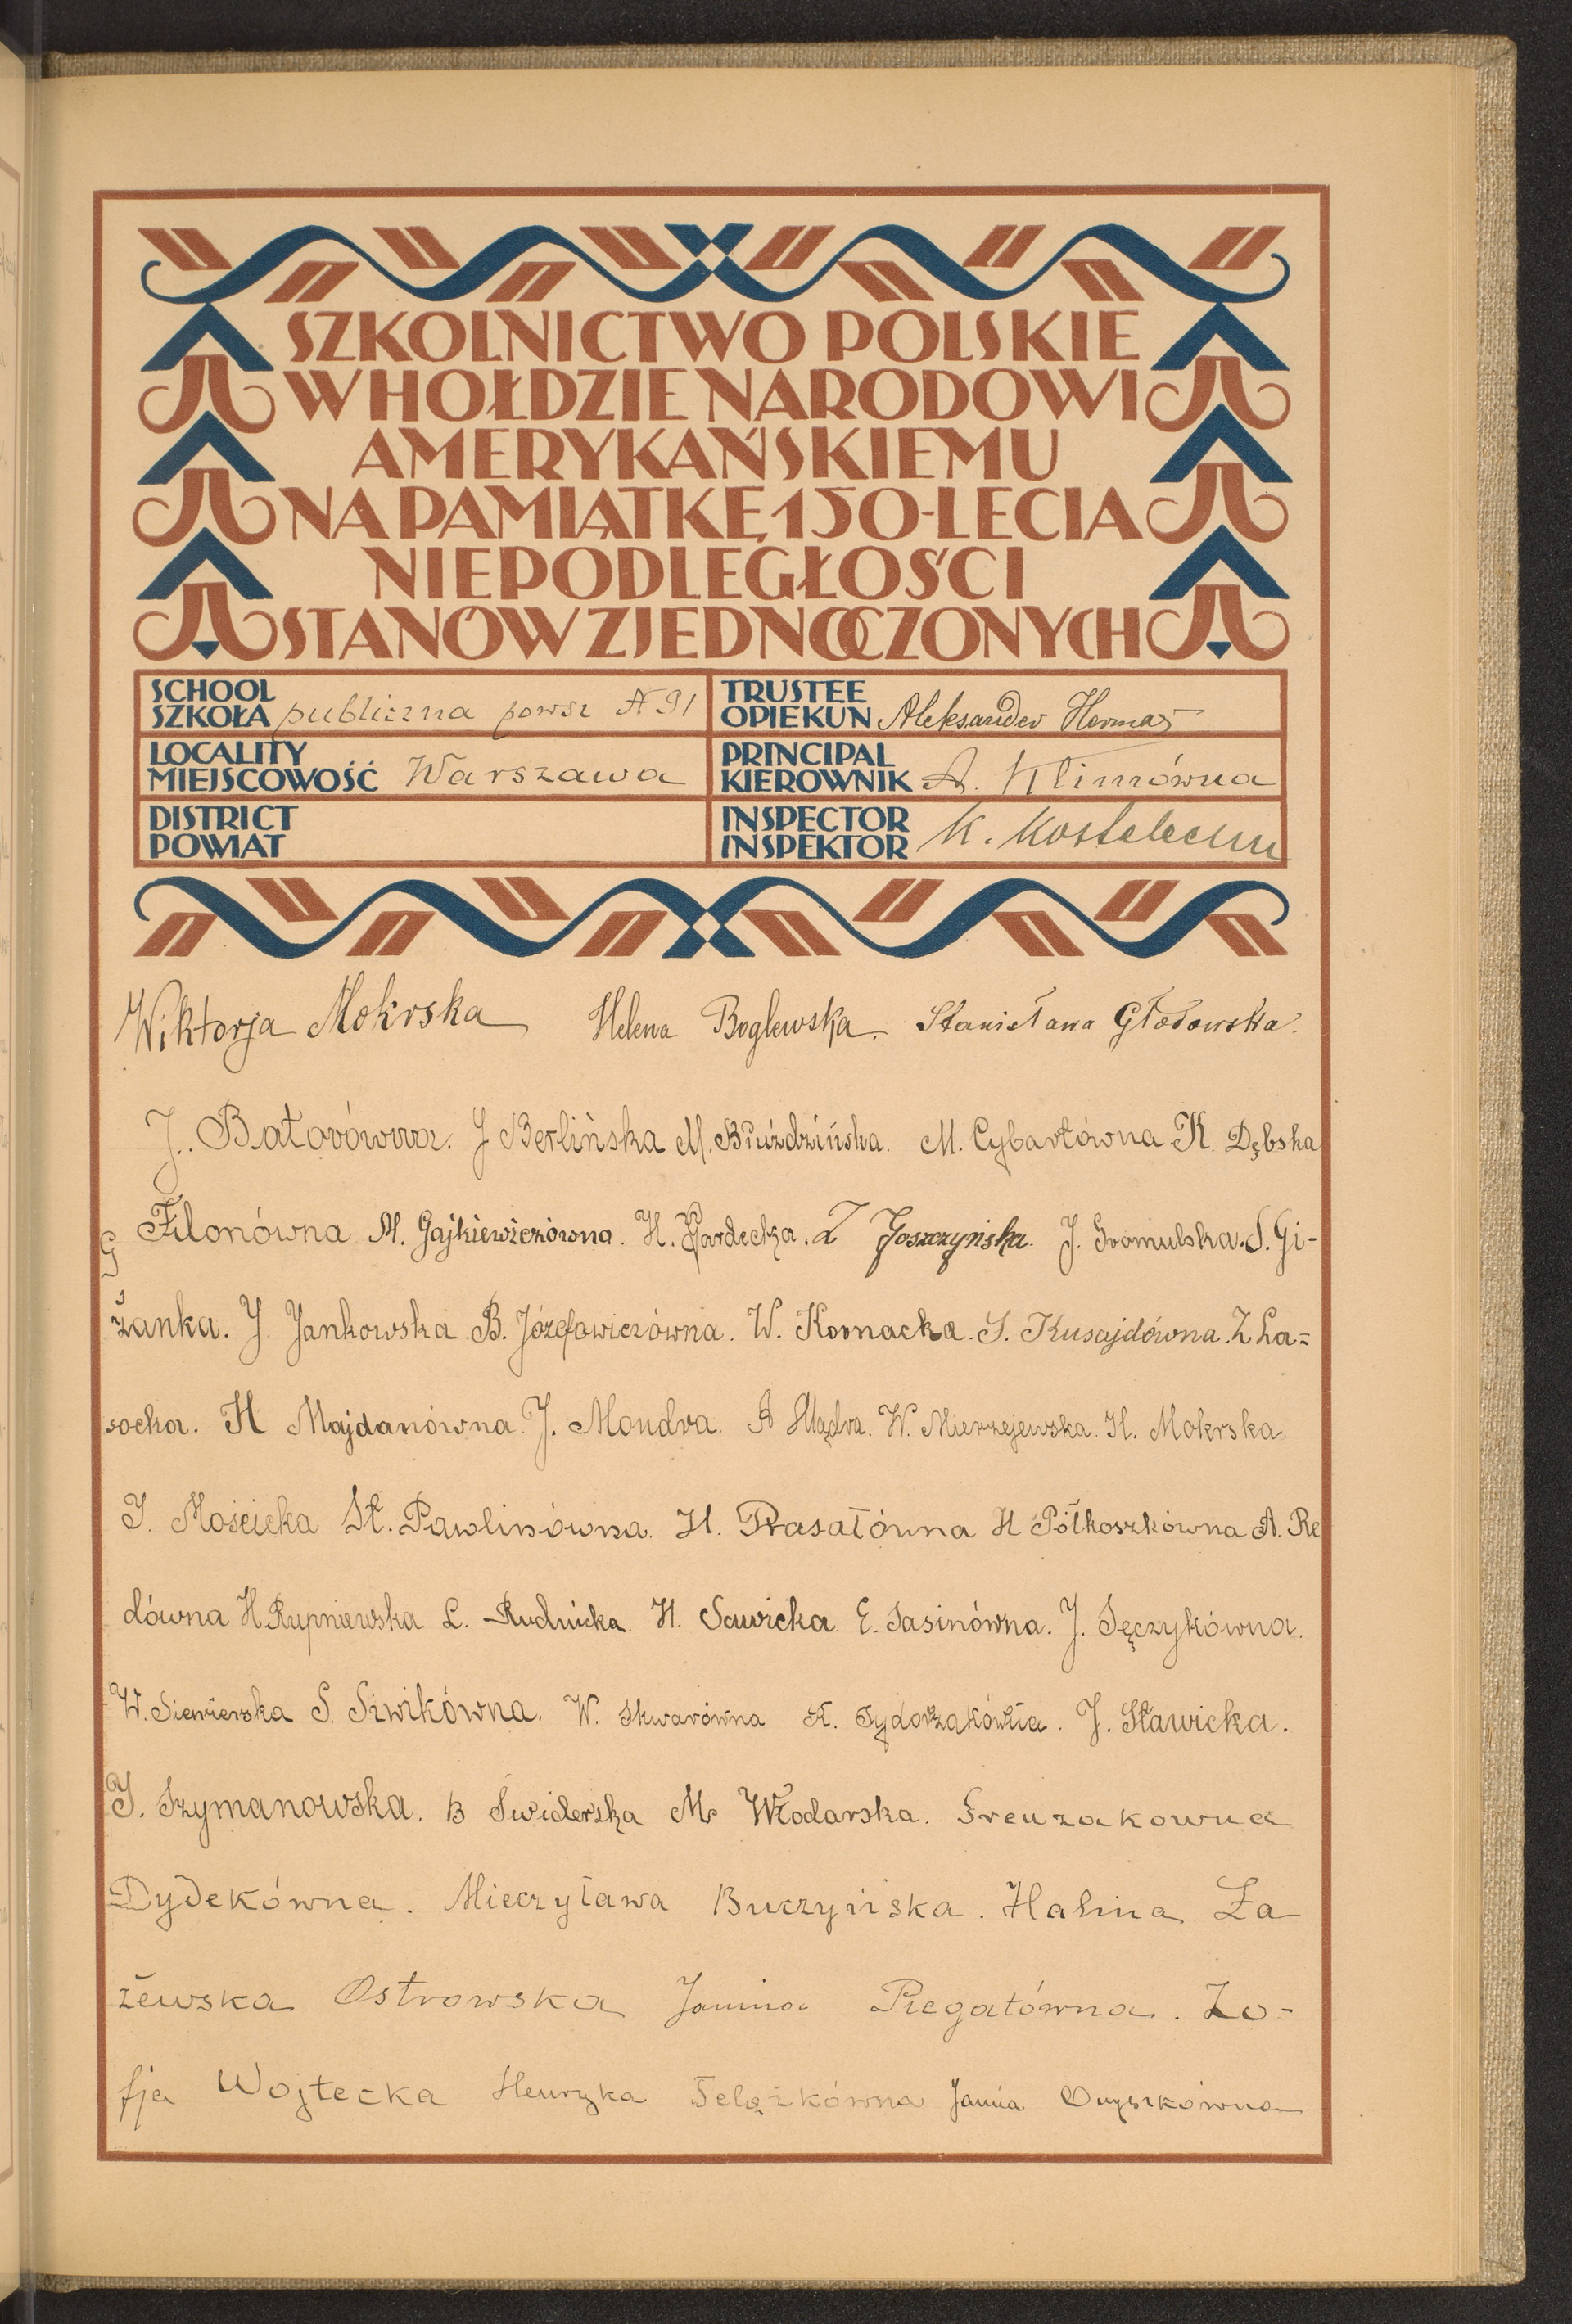 SZKOLNICTWO POLSKIE
W HOŁDZIE NARODOWI
AMERYKAŃSKIEMU
NA PAMIĄTKĘ 150-LECIA
NIEPODLEGŁOŚCI
STANÓW ZJEDNOCZONYCH
SCHOOL
SZKOŁA publiczna powsz № 91
TRUSTEE
OPIEKUN Aleksander
LOCALITY
MIEJSCOWOŚĆ Warszawa
PRINCIPAL
KIEROWNIK A. Klimówna
DISTRICT
POWIAT
INSPECTOR
INSPEKTOR K.
Wiktorja Mokrska Helena Boglewska. Stanisława Głodowska.
J. Batorówna. J Berlińska M. Bruździńska. M. Cybartówna K. Dębska
G Filonówna M. Gajkiewiczówna. H. Gardecka. Z Goszczyńska. J. Gromulska. S. Gi-
żanka. J. Jankowska B. Józefowiczówna. W. Kornacka. S. Kusajdówna. Z La=
socka. H Majdanówna. J. Mondra. A Mądra. W. Mierzejewska. H. Mokrska.
J. Mościcka St. Pawlinówna. H. Prasałówna H Półkoszkówna A. Re
dówna H. Rupniewska L. Rudnicka. H. Sawicka. E. Sasinówna. J. Sęczykówna.
W. Siewierska S. Siwikówna. W. Skwarówna K. J. Sławicka.
J. Szymanowska. B Świderska M. Włodarska. Grenzakowna
Dydekówna. Mieczyława Buczyńska. Halina Za
żewska Ostrowska Janina Piegatówna. Zo-
fja Wojtecka Henryka Felążkówna Janina